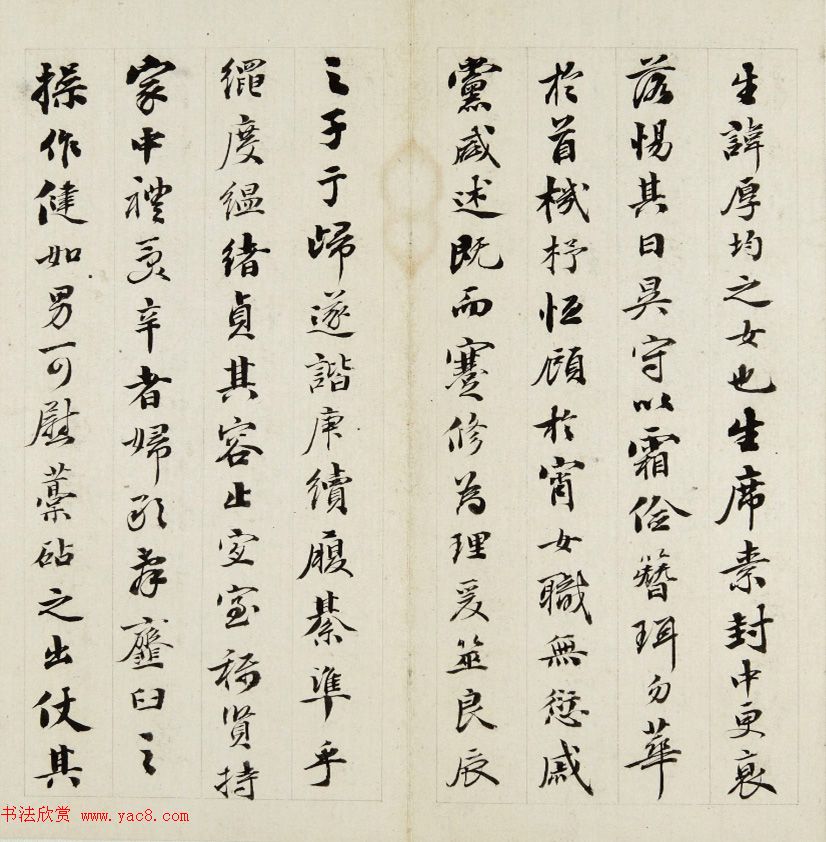 生諱厚均之女也生席素封中更衰
落惕其日昃守以霜儉簪珥勿華
於首機杼恒顧於宵女職無愆戚
黨咸述既而蹇修為理爰筮良辰
之子于歸遂諧庚續履綦準乎
繩度縕緒貞其容止室稱賢持
家中禮受辛者婦臼之
操作健如男可慰藁砧之出仗其
书法欣赏 www.yac8.com